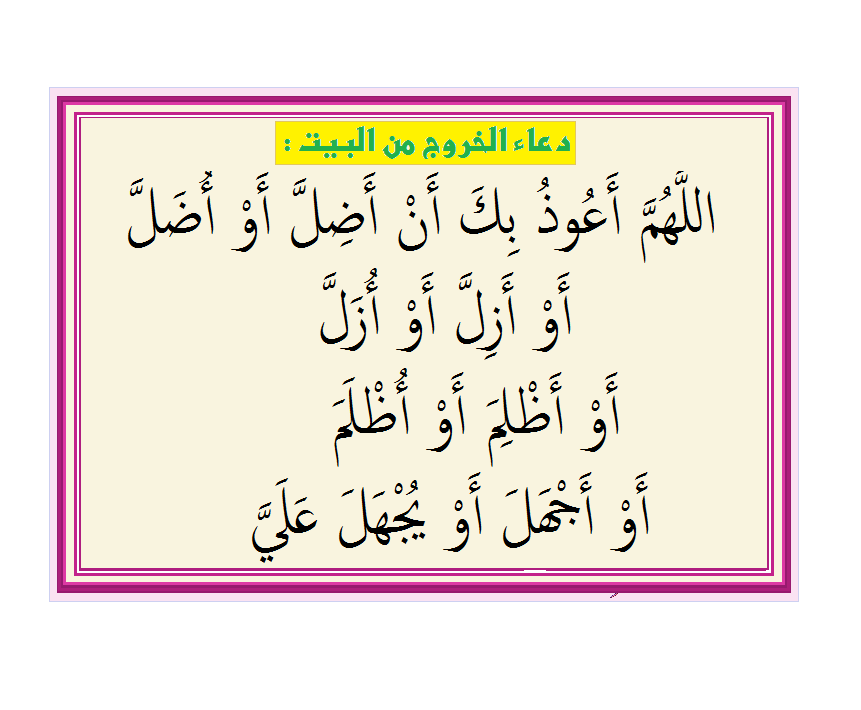 دعاء الخروج من البيت :
اللَّهُمَّ أَعُوذُ بِكَ أَنْ أَضِلَّ أَوْ أُضَلَّ
أَوْ أَزِلَّ أَوْ أُزَلَّ
أَوْ أَظْلِمَ أَوْ أُظْلَمَ
أَوْ أَجْهَلَ أَوْ يُجْهَلَ عَلَيَّ